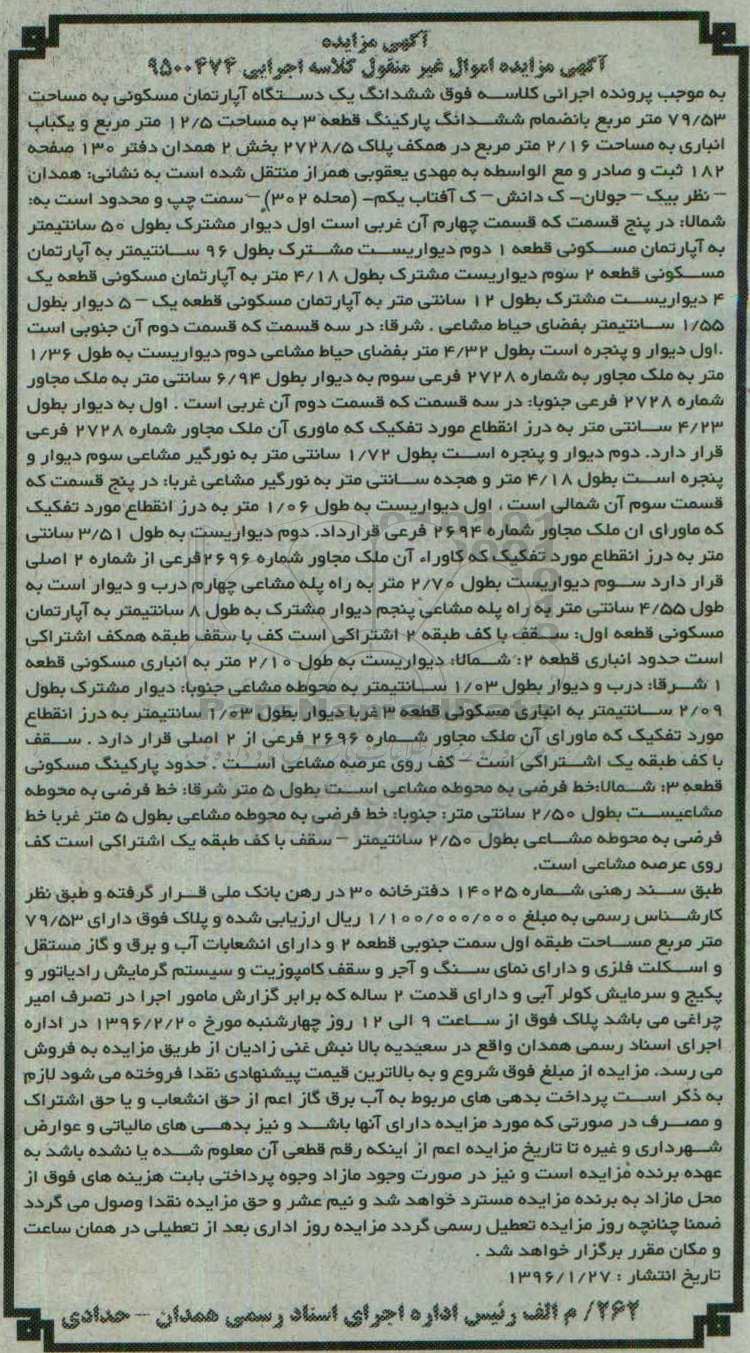 آگهی مزایده
آگهی مزایده اموال غیر منقول کلاسه اجرایی ۹۵۰۰۴۷۴
به موجب پرونده اجرائی کلاسه فوق ششدانگ یک دستگاه آپارتمان مسکونی به مساحت
۷۹/۵۳ متر مربع بانضمام ششدانگ پارکینگ قطعه ۳ به مساحت ۱۲/۵ متر مربع و یکباب
انباری به مساحت ۲/۱۶ متر مربع در همکف پلاک ۲۷۲۸/۵ بخش ۲ همدان دفتر ۱۳۰ صفحه
۱۸۲ ثبت و صادر و مع الواسطه به مهدی یعقوبی همراز منتقل شده است به نشانی: همدان
– نظر بیک – جولان- ک دانش – ک آفتاب یکم- (محله ۳۰۲) – سمت چپ و محدود است به:
شمالا: در پنج قسمت که قسمت چهارم آن غربی است اول دیوار مشترک بطول ۵۰ سانتیمتر
به آپارتمان مسکونی قطعه ۱ دوم دیواریست مشترک بطول ۹۶ سانتیمتر به آپارتمان
مسکونی قطعه ۲ سوم دیواریست مشترک بطول ۴/۱۸ متر به آپارتمان مسکونی قطعه یک
۴ دیواریست مشترک بطول ۱۲ سانتی متر به آپارتمان مسکونی قطعه یک – ۵ دیوار بطول
۱/۵۵ سانتیمتر بفضای حیاط مشاعی . شرقا: در سه قسمت که قسمت دوم آن جنوبی است
.اول دیوار و پنجره است بطول ۴/۳۲ متر بفضای حیاط مشاعی دوم دیواریست به طول ۱/۳۶
متر به ملک مجاور به شماره ۲۷۲۸ فرعی سوم به دیوار بطول ۶/۹۴ سانتی متر به ملک مجاور
شماره ۲۷۲۸ فرعی جنوبا: در سه قسمت که قسمت دوم آن غربی است . اول به دیوار بطول
۴/۲۳ سانتی متر به درز انقطاع مورد تفکیک که ماوری آن ملک مجاور شماره ۲۷۲۸ فرعی
قرار دارد. دوم دیوار و پنجره است بطول ۱/۷۲ سانتی متر به نورگیر مشاعی سوم دیوار و
پنجره است بطول ۴/۱۸ متر و هجده سانتی متر به نورگیر مشاعی غربا: در پنج قسمت که
قسمت سوم آن شمالی است ، اول دیواریست به طول ۱/۰۶ متر به درز انقطاع مورد تفکیک
که ماورای ان ملک مجاور شماره ۲۶۹۴ فرعی قرارداد. دوم دیواریست به طول ۳/۵۱ سانتی
متر به درز انقطاع مورد تفکیک که کاوراء آن ملک مجاور شماره ۲۶۹۶فرعی از شماره ۲ اصلی
قرار دارد سوم دیواریست بطول ۲/۷۰ متر به راه پله مشاعی چهارم درب و دیوار است به
طول ۴/۵۵ سانتی متر به راه پله مشاعی پنجم دیوار مشترک به طول ۸ سانتیمتر به آپارتمان
مسکونی قطعه اول: سقف با کف طبقه ۲ اشتراکی است کف با سقف طبقه همکف اشتراکی
است حدود انباری قطعه ۲: شمالا: دیواریست به طول ۲/۱۰ متر به انباری مسکونی قطعه
۱ شرقا: درب و دیوار بطول ۱/۰۳ سانتیمتر به محوطه مشاعی جنوبا: دیوار مشترک بطول
۲/۰۹ سانتیمتر به انباری مسکونی قطعه ۳ غربا دیوار بطول ۱/۰۳ سانتیمتر به درز انقطاع
مورد تفکیک که ماورای آن ملک مجاور شماره ۲۶۹۶ فرعی از ۲ اصلی قرار دارد . سقف
با کف طبقه یک اشتراکی است – کف روی عرصه مشاعی است . حدود پارکینگ مسکونی
قطعه ۳: شمالا:خط فرضی به محوطه مشاعی است بطول ۵ متر شرقا: خط فرضی به محوطه
مشاعیست بطول ۲/۵۰ سانتی متر: جنوبا: خط فرضی به محوطه مشاعی بطول ۵ متر غربا خط
فرضی به محوطه مشاعی بطول ۲/۵۰ سانتیمتر – سقف با کف طبقه یک اشتراکی است کف
روی عرصه مشاعی است.
طبق سند رهنی شماره ۱۴۰۲۵ دفترخانه ۳۰ در رهن بانک ملی قرار گرفته و طبق نظر
کارشناس رسمی به مبلغ ۱/۱۰۰/۰۰۰/۰۰۰ ریال ارزیابی شده و پلاک فوق دارای ۷۹/۵۳
متر مربع مساحت طبقه اول سمت جنوبی قطعه ۲ و دارای انشعابات آب و برق و گاز مستقل
و اسکلت فلزی و دارای نمای سنگ و آجر و سقف کامپوزیت و سیستم گرمایش رادیاتور و
پکیج و سرمایش کولر آبی و دارای قدمت ۲ ساله که برابر گزارش مامور اجرا در تصرف امیر
چراغی می باشد پلاک فوق از ساعت ۹ الی ۱۲ روز چهارشنبه مورخ ۱۳۹۶/۲/۲۰ در اداره
اجرای اسناد رسمی همدان واقع در سعیدیه بالا نبش غنی زادیان از طریق مزایده به فروش
می رسد. مزایده از مبلغ فوق شروع و به بالاترین قیمت پیشنهادی نقدا فروخته می شود لازم
به ذکر است پرداخت بدهی های مربوط به آب برق گاز اعم از حق انشعاب و یا حق اشتراک
و مصرف در صورتی که مورد مزایده دارای آنها باشد و نیز بدهی های مالیاتی و عوارض
شهرداری و غیره تا تاریخ مزایده اعم از اینکه رقم قطعی آن معلوم شده یا نشده باشد به
عهده برنده مزایده است و نیز در صورت وجود مازاد وجوه پرداختی بابت هزینه های فوق از
محل مازاد به برنده مزایده مسترد خواهد شد و نیم عشر و حق مزایده نقدا وصول می گردد
ضمنا چنانچه روز مزایده تعطیل رسمی گردد مزایده روز اداری بعد از تعطیلی در همان ساعت
و مکان مقرر برگزار خواهد شد .
تاریخ انتشار : ۱۳۹۶/۱/۲۷
۲۶۲/ م الف رئیس اداره اجرای اسناد رسمی همدان – حدادی